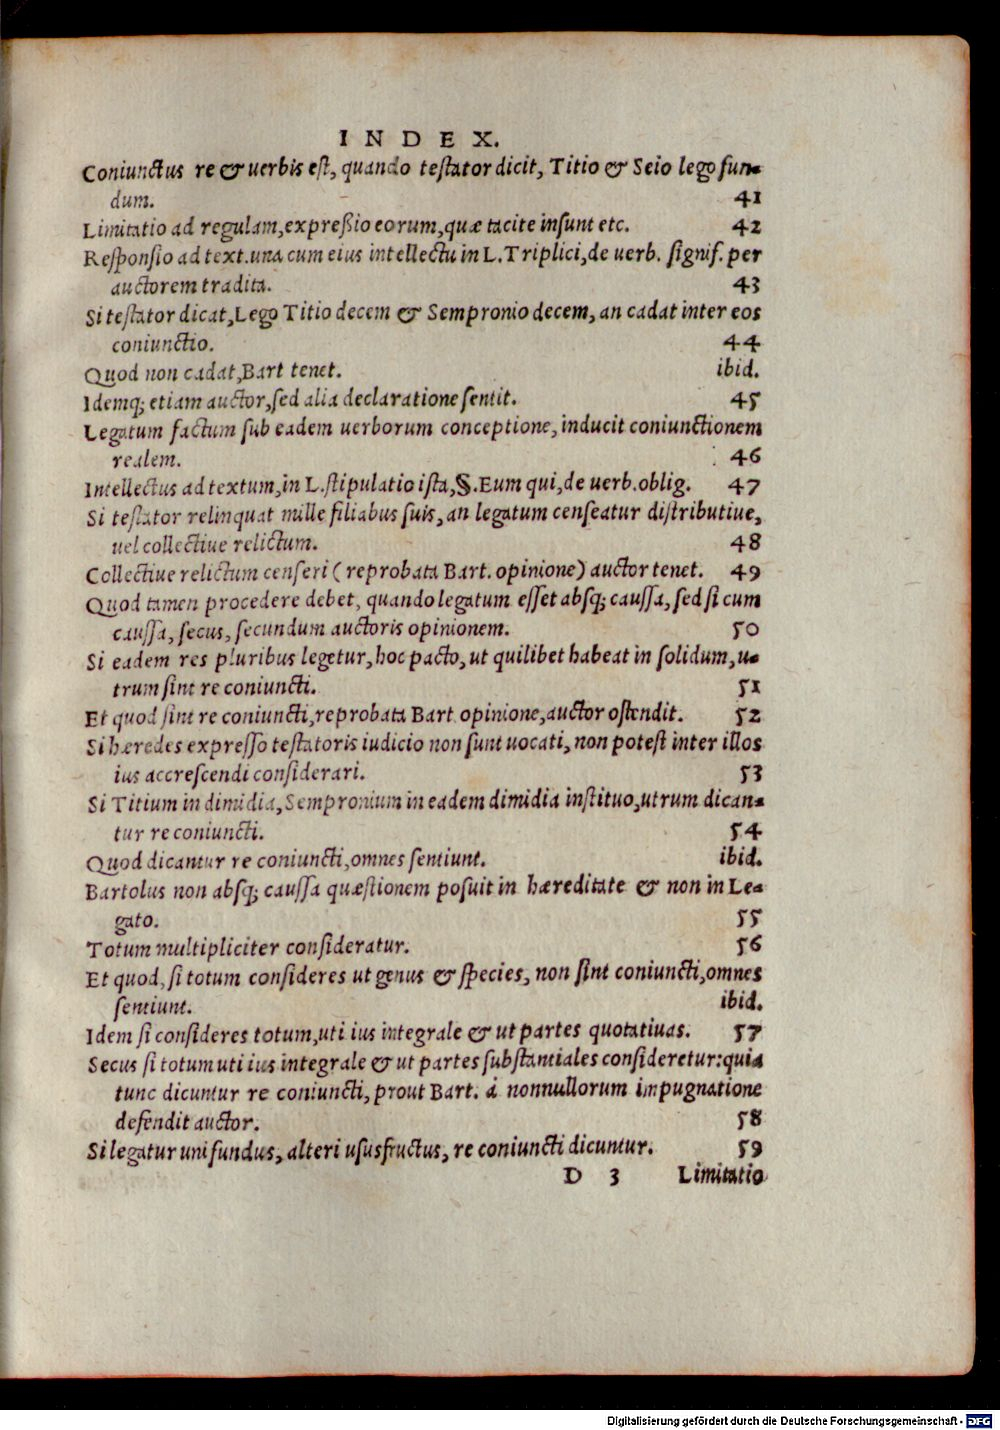 INDEX.
Coniunctus re & uerbis est, quando testator dicit, Titio & Seio lego fun-
dum. 41
Limitatio ad regulam, expreßio eorum, quæ tacite insunt etc. 42
Responsio ad text. una cum eius intellectu in L. Triplici, de uerb. signif. per
auctorem tradita. 43
Si testator dicat, Lego Titio decem & Sempronio decem, an cadat inter eos
coniunctio. 44
Quod non cadat, Bart tenet. ibid.
Idemq; etiam auctor, sed alia declaratione sentit. 45
Legatum factum sub eadem uerborum conceptione, inducit coniunctionem
realem. 46
Intellectus ad textum, in L. stipulatio ista, §. Eum qui, de uerb. oblig. 47
Si testator relinquat mille filiabus suis, an legatum censeatur distributiue,
uel collectiue relictum. 48
Collectiue relictum censeri (reprobata Bart. opinione) auctor tenet. 49
Quod tamen procedere debet, quando legatum esset absq; caussa, sed si cum
caussa, secus, secundum auctoris opinionem. 50
Si eadem res pluribus legetur, hoc pacto, ut quilibet habeat in solidum, u-
trum sint re coniuncti. 51
Et quod sint re coniuncti, reprobata Bart opinione, auctor ostendit. 52
Si hæredes expresso testatoris iudicio non sunt uocati, non potest inter illos
ius accrescendi considerari. 53
Si Titium in dimidia, Sempronium in eadem dimidia instituo, utrum dican-
tur re coniuncti. 54
Quod dicantur re coniuncti, omnes sentiunt. ibid.
Bartolus non absq; caussa quæstionem posuit in hæreditate & non in Le-
gato. 55
Totum multipliciter consideratur. 56
Et quod, si totum consideres ut genus & species, non sint coniuncti, omnes
sentiunt. ibid.
Idem si consideres totum, uti ius integrale & ut partes quotatiuas. 57
Secus si totum uti ius integrale & ut partes substantiales consideretur: quia
tunc dicuntur re coniuncti, prout Bart. á nonnullorum impugnatione
defendit auctor. 58
Si legatur uni fundus, alteri ususfructus, re coniuncti dicuntur. 59
D 3 Limitatio
Digitalisierung gefördert durch die Deutsche Forschungsgemeinschaft - DFG